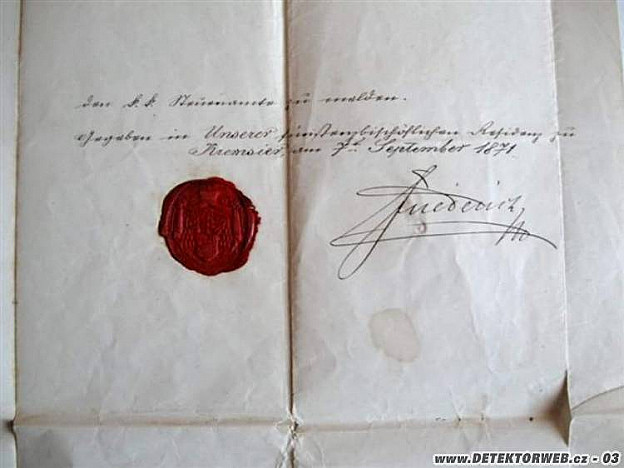 den k. k. Steueramte zu melden.
Gegeben in Unserer fürsterzbischöflichen Residenz zu
Kremsier, am 7ten September 1871.
Friederich
www.DETEKTORWEB.cz - 03